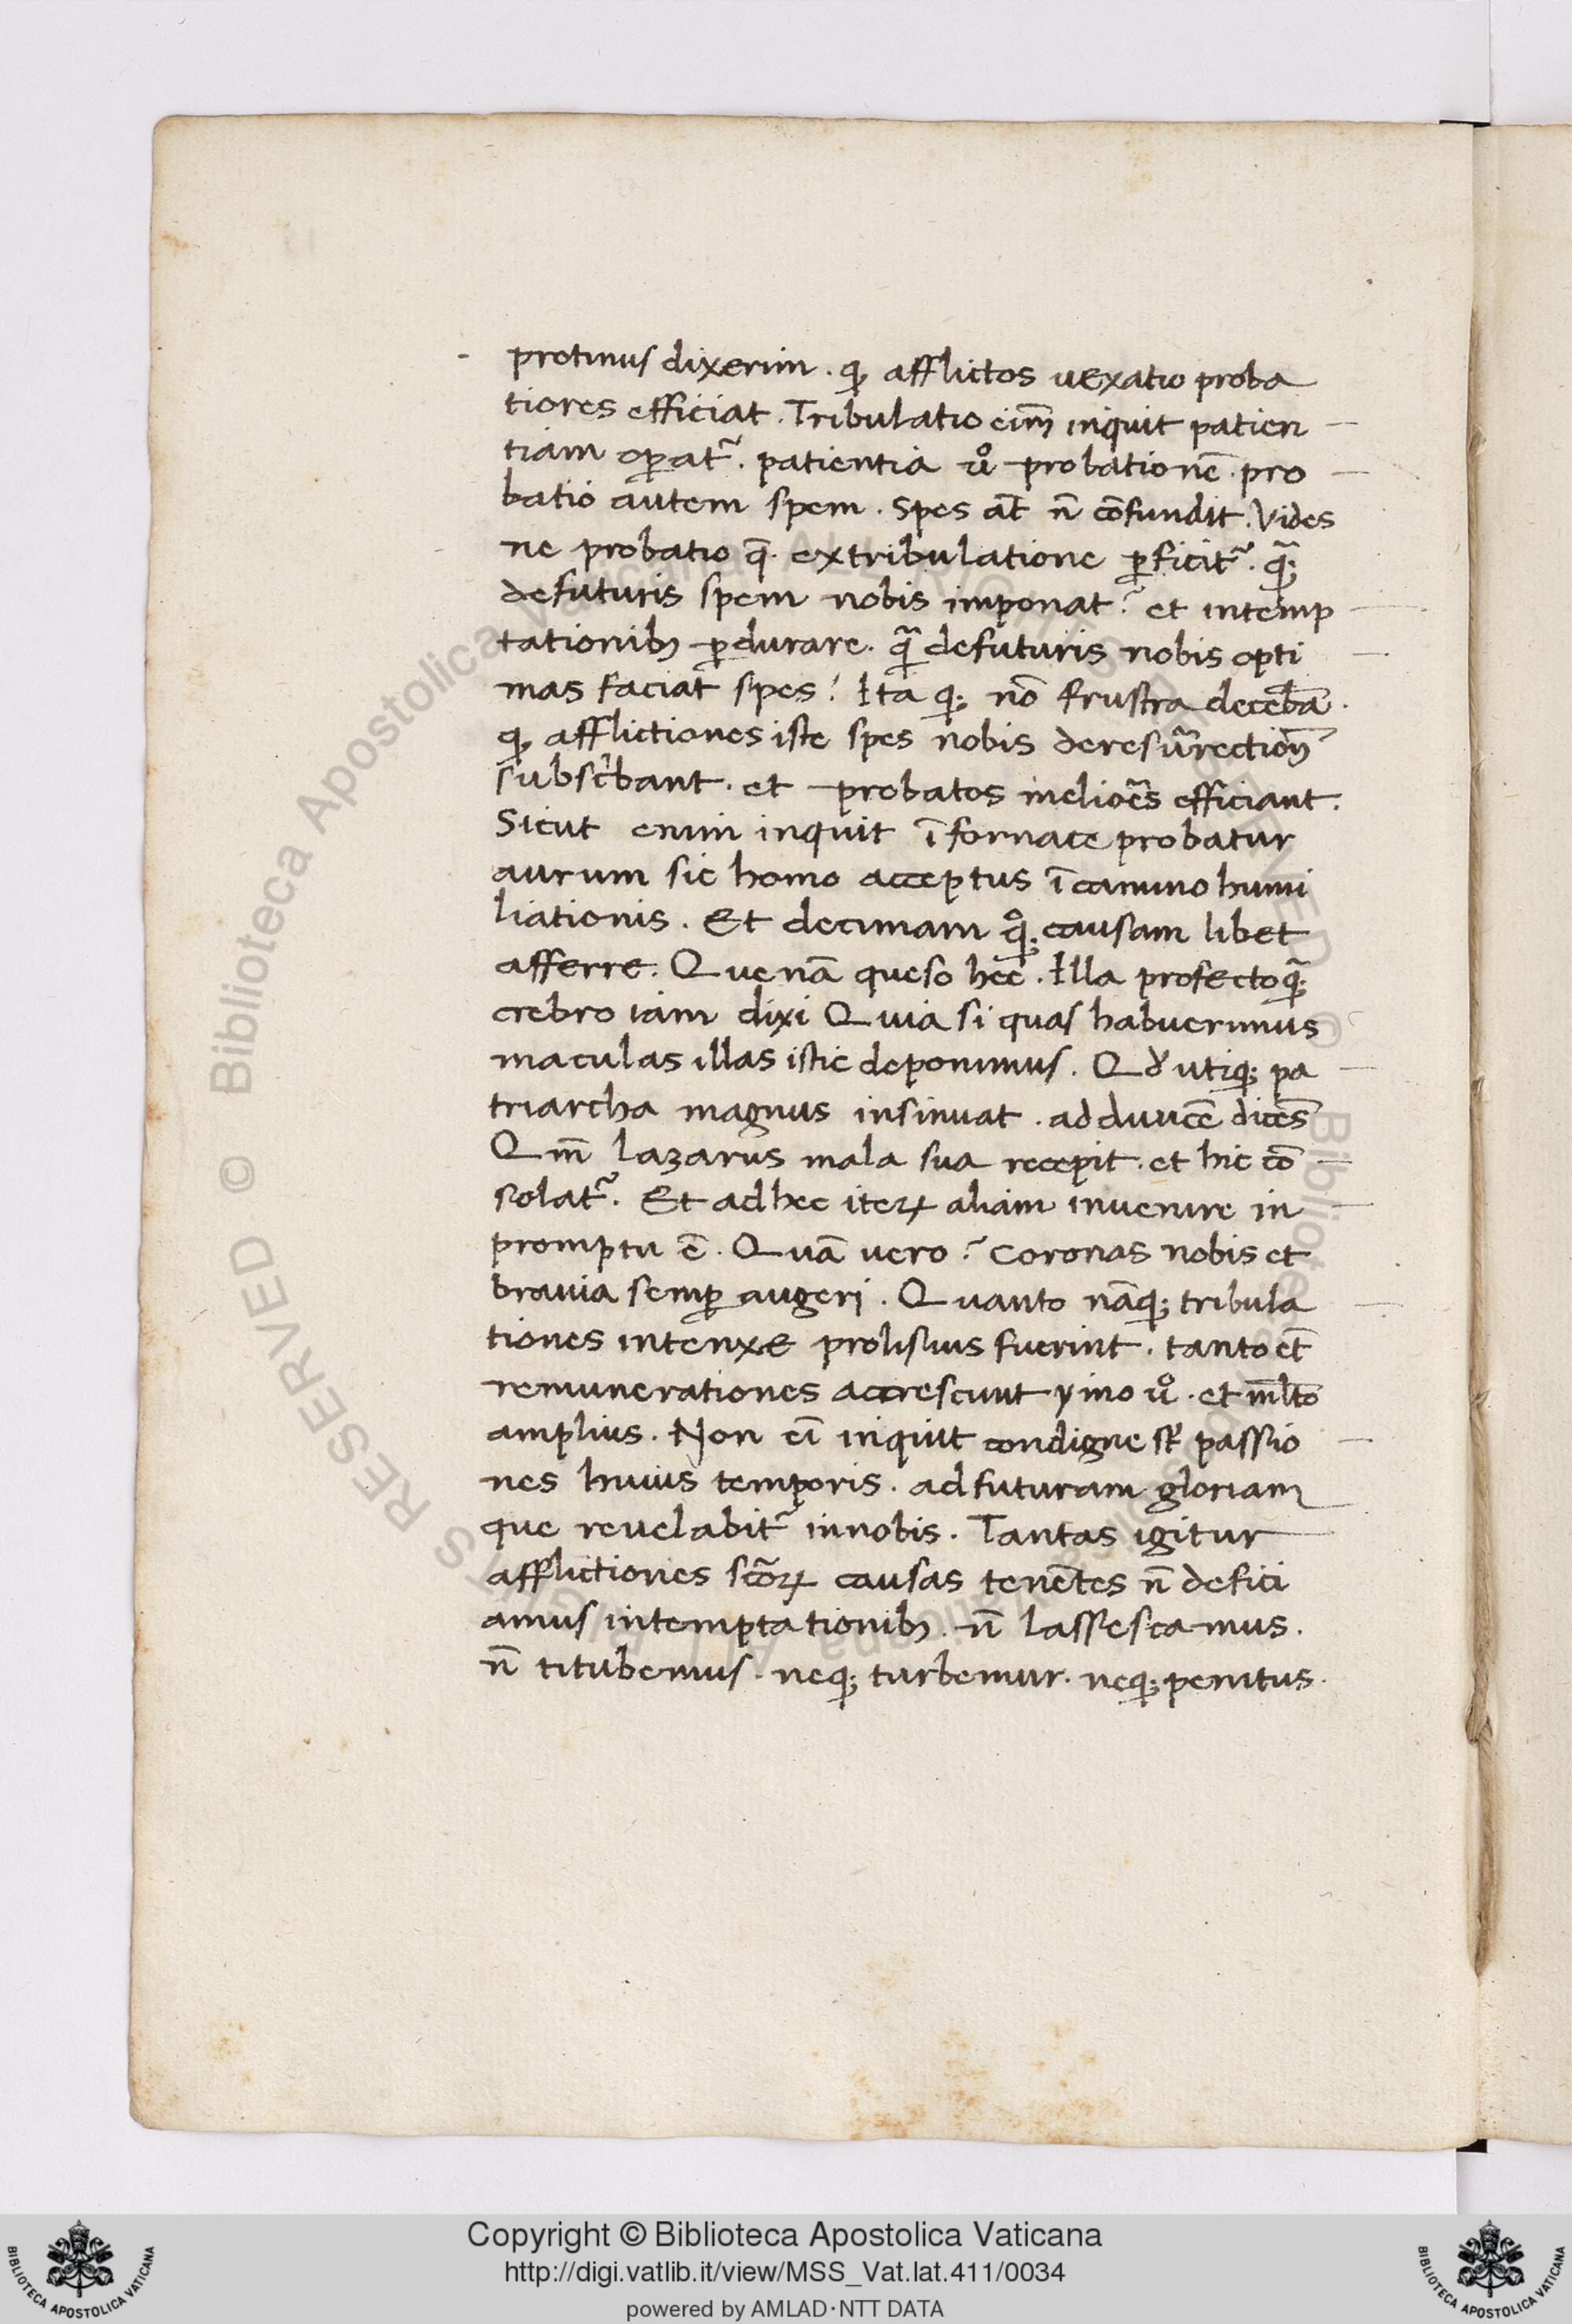 protinus dixerim . qꝫ afflictos uexatio proba
tiores efficiat . Tribulatio eim̃ inquit patien
tiam oꝑat᷑ . patientia ů probationē . pro
batio autem spem . Spes aūt n̄ cōfundit . Vides
ne probatio q̄ extribulatione ꝑficit᷑ . q̃ꝫ
defuturis spem nobis imponat ? et intemp
tationibꝫ ꝑdurare . q̃ defuturis nobis opti
mas faciat spes ? Ita qꝫ nō frustra decebā .
qꝫ afflictiones iste spes nobis deresũrectioñ
subscͥbant . et probatos melioẽs efficiant .
Sicut enim inquit ī fornace probatur
aurum sic homo acceptus ī camino humi
liationis . Et decimam qͦꝫ causam libet
afferre . Quenā queso hec̄ . Illa profecto q̃ꝫ
crebro iam dixi Quia si quas habuerimus
maculas illas istic deponimus . Qđ utiqꝫ pa
triarcha magnus insinuat . ad duucē dicēs
Qm̄ lazarus mala sua recepit . et hic cō
solat᷑ . Et adhec iteꝝ aliam inuenire in
promptu ē . Quā vero ? Coronas nobis et
brauia semꝑ augeri . Quanto nāqꝫ tribula
tiones intenxe prolisius fuerint . tanto et̄
remunerationes accrescunt ymo ů . et ml̄to
amplius . Non ei̅ inquit condigne st̄ passio
nes huius temporis . adfuturam gloriam
que reuelabit᷑ innobis . Tantas igitur
afflictiones sc̄oꝝ causas tenētes n̄ defici
amus intemptationibꝫ . n̄ lassescamus .
n̄ titubemus . neqꝫ turbemur . neqꝫ penitus .
Copyright © Biblioteca Apostolica Vaticana
http://digi.vatlib.it/view/MSS_Vat.lat.411/0034
powered by AMLAD·NTT DATA